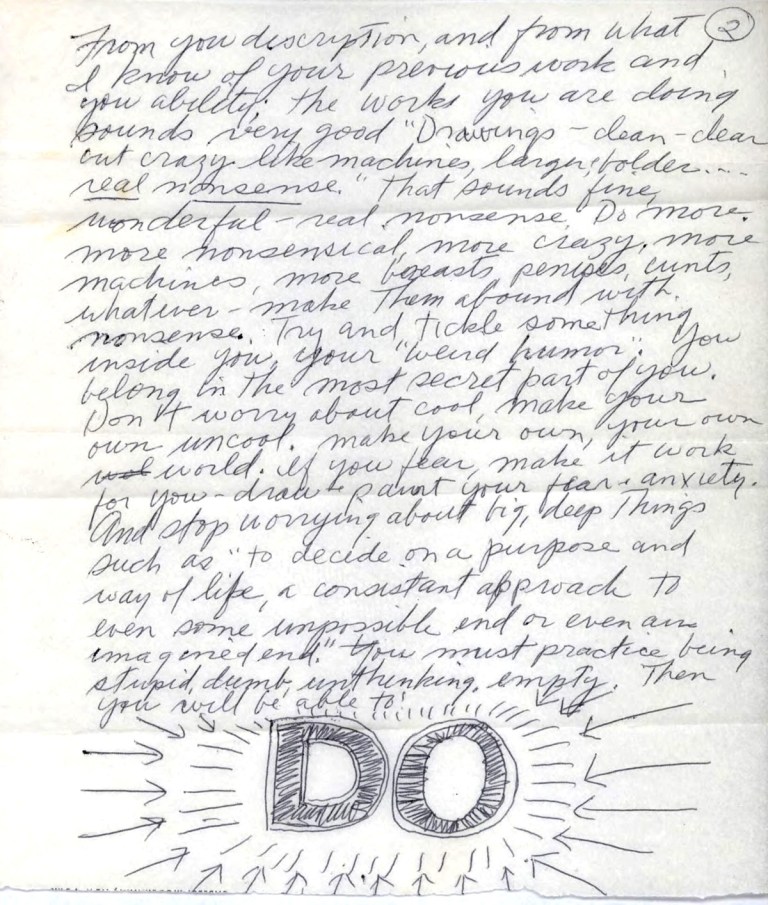 2
From you description, and from what
I know of your previous work and
you ability; the works you are doing
sounds very good "Drawings – clean – clear
cut crazy like machines, larger, bolder....
real nonsense." That sounds fine,
wonderful – real nonsense. Do more.
more nonsensical, more crazy, more
machines, more breasts, penises, cunts,
whatever – make them abound with
nonsense. Try and tickle something
inside you, your "weird humor". You
belong in the most secret part of you.
Don't worry about cool, make your
own uncool. make your own, your own
world. If you fear, make it work
for you – draw + paint your fear + anxiety.
And stop worrying about big, deep things
such as "to decide on a purpose and
way of life, a consistant approach to
even some impossible end or even an
imagined end." You must practice being
stupid, dumb, unthinking, empty. Then
you will be able to
DO